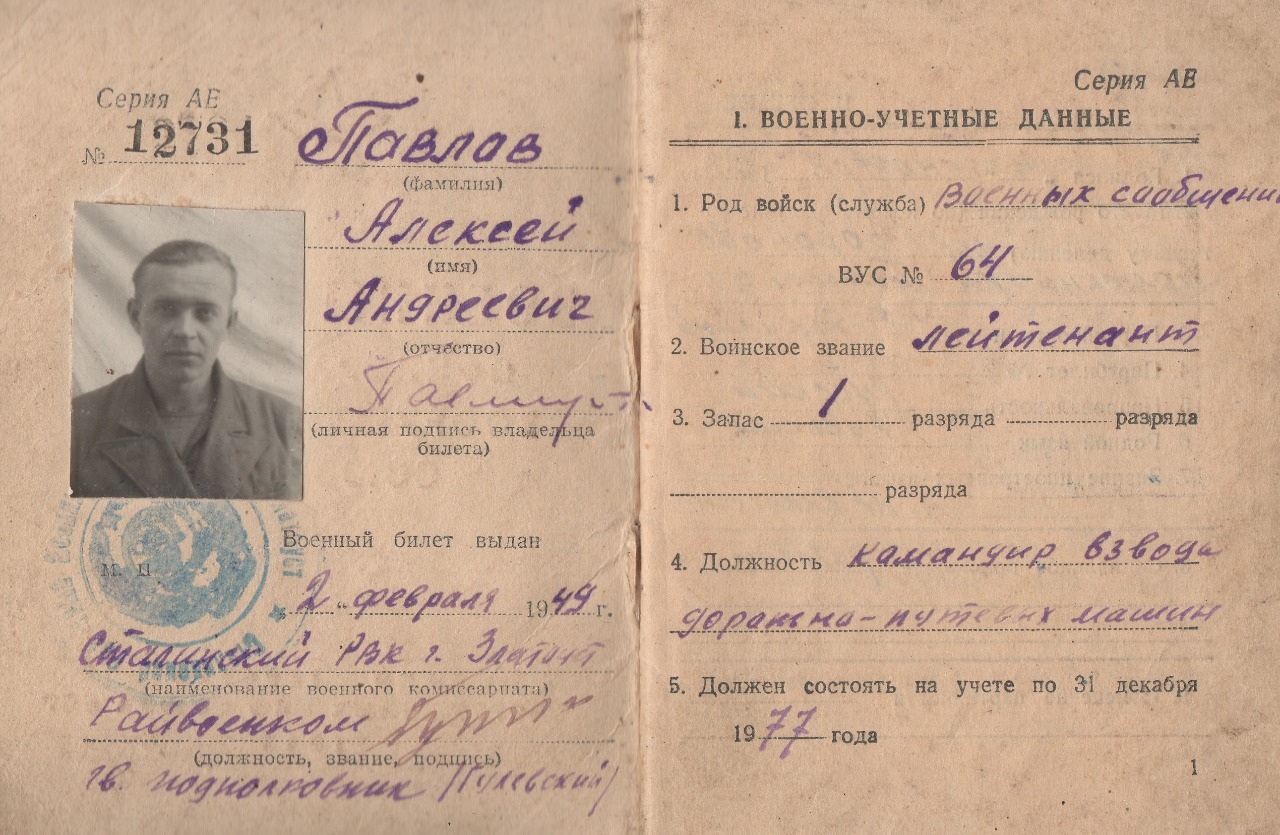 Серия АЕ
№ 12731
Павлов
(фамилия)
Алексей
(имя)
Андреевич
(отчество)
(личная подпись владельца
билета)
Военный билет выдан
М. П.
„2“ февраля 1949 г.
Сталинский РВК г. Златоуст
(наименование военного комиссариата)
Райвоенком
(должность, звание, подпись)
гв. подполковник (Гулевский)
Серия АЕ
1. ВОЕННО-УЧЕТНЫЕ ДАННЫЕ
1. Род войск (служба) Военных сообщени
ВУС № 64
2. Воинское звание лейтенант
3. Запас 1 разряда разряда
разряда
4. Должность командир взвода
дорожно-путевых машин
5. Должен состоять на учете по 31 декабря
1977 года
1